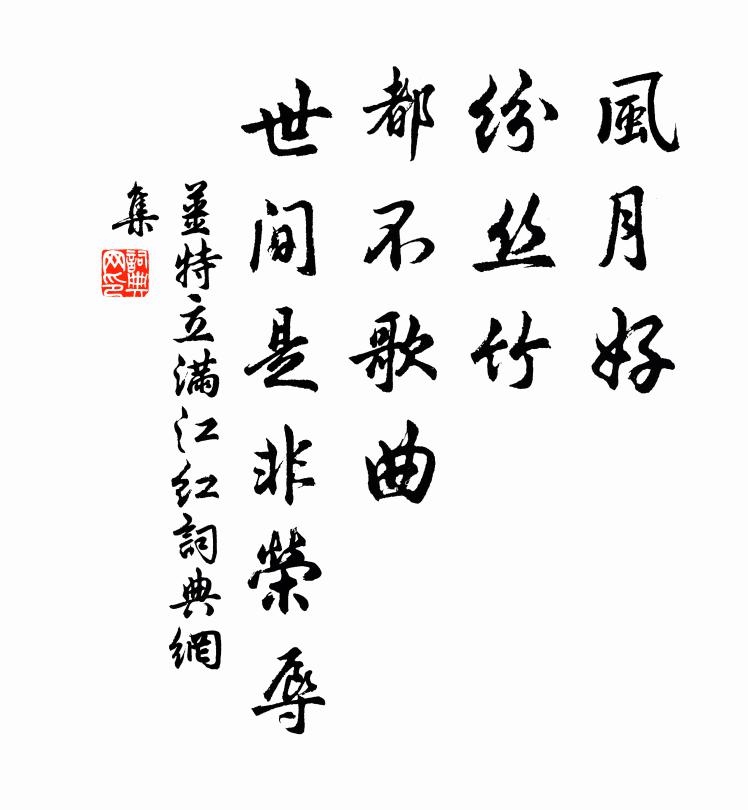 風月好
紛丝竹
都不歌曲
世间是非榮辱
姜特立满江红詞典網
集
詞典
网印